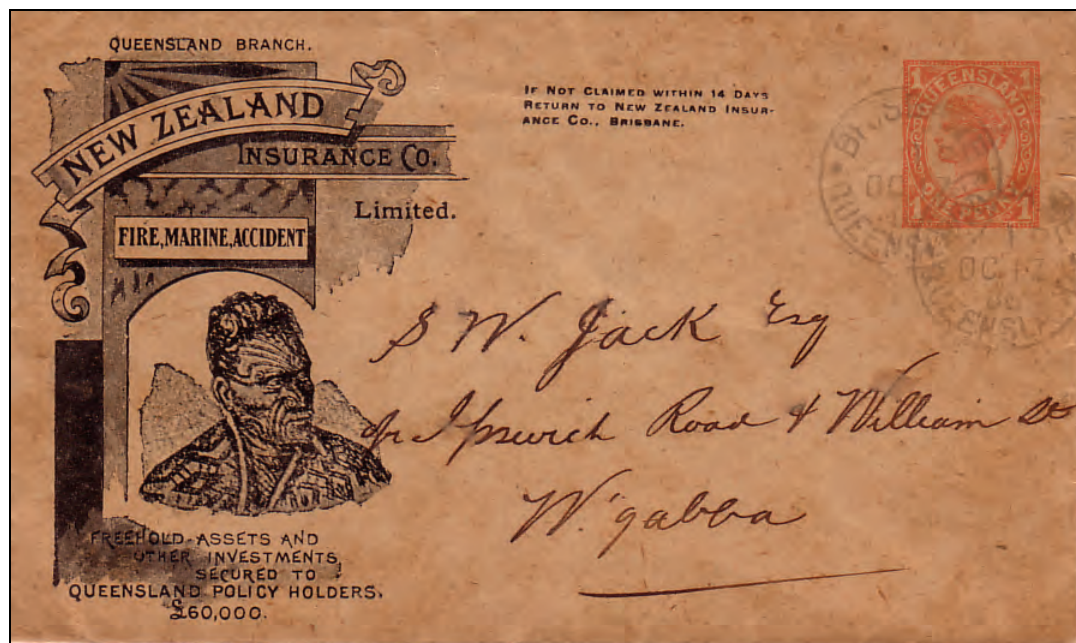 QUEENSLAND BRANCH.
NEW ZEALAND
INSURANCE CO.
Limited.
FIRE, MARINE, ACCIDENT
FREEHOLD-ASSETS AND
OTHER INVESTMENTS
SECURED TO
QUEENSLAND POLICY HOLDERS.
£60,000.
IF NOT CLAIMED WITHIN 14 DAYS
RETURN TO NEW ZEALAND INSUR-
ANCE CO., BRISBANE.
1 QUEENSLAND 1
1 ONE PENNY 1
QUEENSLAND
OC 17
S W. Jack Esq
Cr Ipswich Road & William St
W'gabba